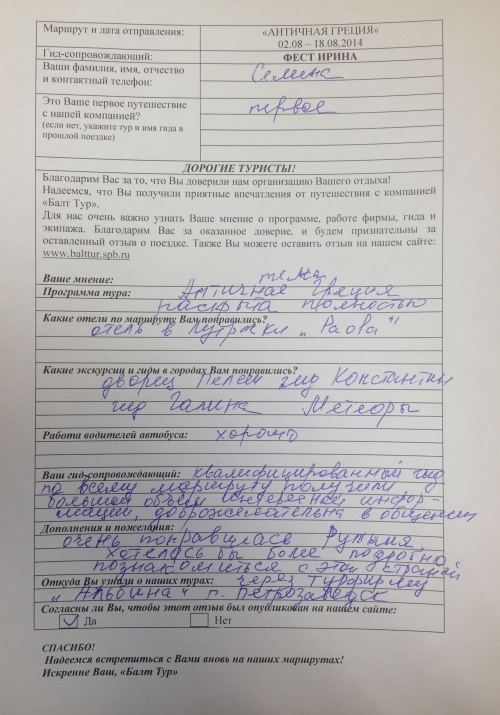 Маршрут и дата отправления: «АНТИЧНАЯ ГРЕЦИЯ»
02.08 – 18.08.2014
Гид-сопровождающий: ФЕСТ ИРИНА
Ваши фамилия, имя, отчество
и контактный телефон:
Это Ваше первое путешествие первое
с нашей компанией?
(если нет, укажите тур и имя гида в
прошлой поездке)
ДОРОГИЕ ТУРИСТЫ!
Благодарим Вас за то, что Вы доверили нам организацию Вашего отдыха!
Надеемся, что Вы получили приятные впечатления от путешествия с компанией
«Балт Тур».
Для нас очень важно узнать Ваше мнение о программе, работе фирмы, гида и
экипажа. Благодарим Вас за оказанное доверие, и будем признательны за
оставленный отзыв о поездке. Также Вы можете оставить отзыв на нашем сайте:
www.balttur.spb.ru
Ваше мнение: тема
Программа тура: Античная Греция
раскрыта полностью
Какие отели по маршруту Вам понравились?
отель в
Какие экскурсии и гиды в городах Вам понравились?
дворец Пелеш гид Константин
гид Галина Метеоры
Работа водителей автобуса: хорошо
Ваш гид-сопровождающий: квалифицированный гид
по всему маршруту получили
большой объем интересной инфор-
мации, доброжелательна в общении
Дополнения и пожелания:
очень понравилась Румыния,
хотелось бы более подробно
познакомиться с этой страной
Откуда Вы узнали о наших турах: через турфирму
"Альбина" г. Петрозаводск
Согласны ли Вы, чтобы этот отзыв был опубликован на нашем сайте:
Да Нет
СПАСИБО!
Надеемся встретиться с Вами вновь на наших маршрутах!
Искренне Ваш, «Балт Тур»